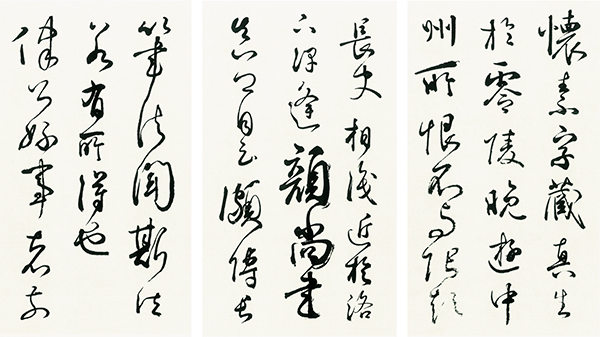 懷素字藏真生
於零陵晚遊中
州所恨不與張顛
長史相識近於洛
下偶逢顏尚書
真卿自云頗傳長
筆法聞斯法
若有所得也
律公好事者前